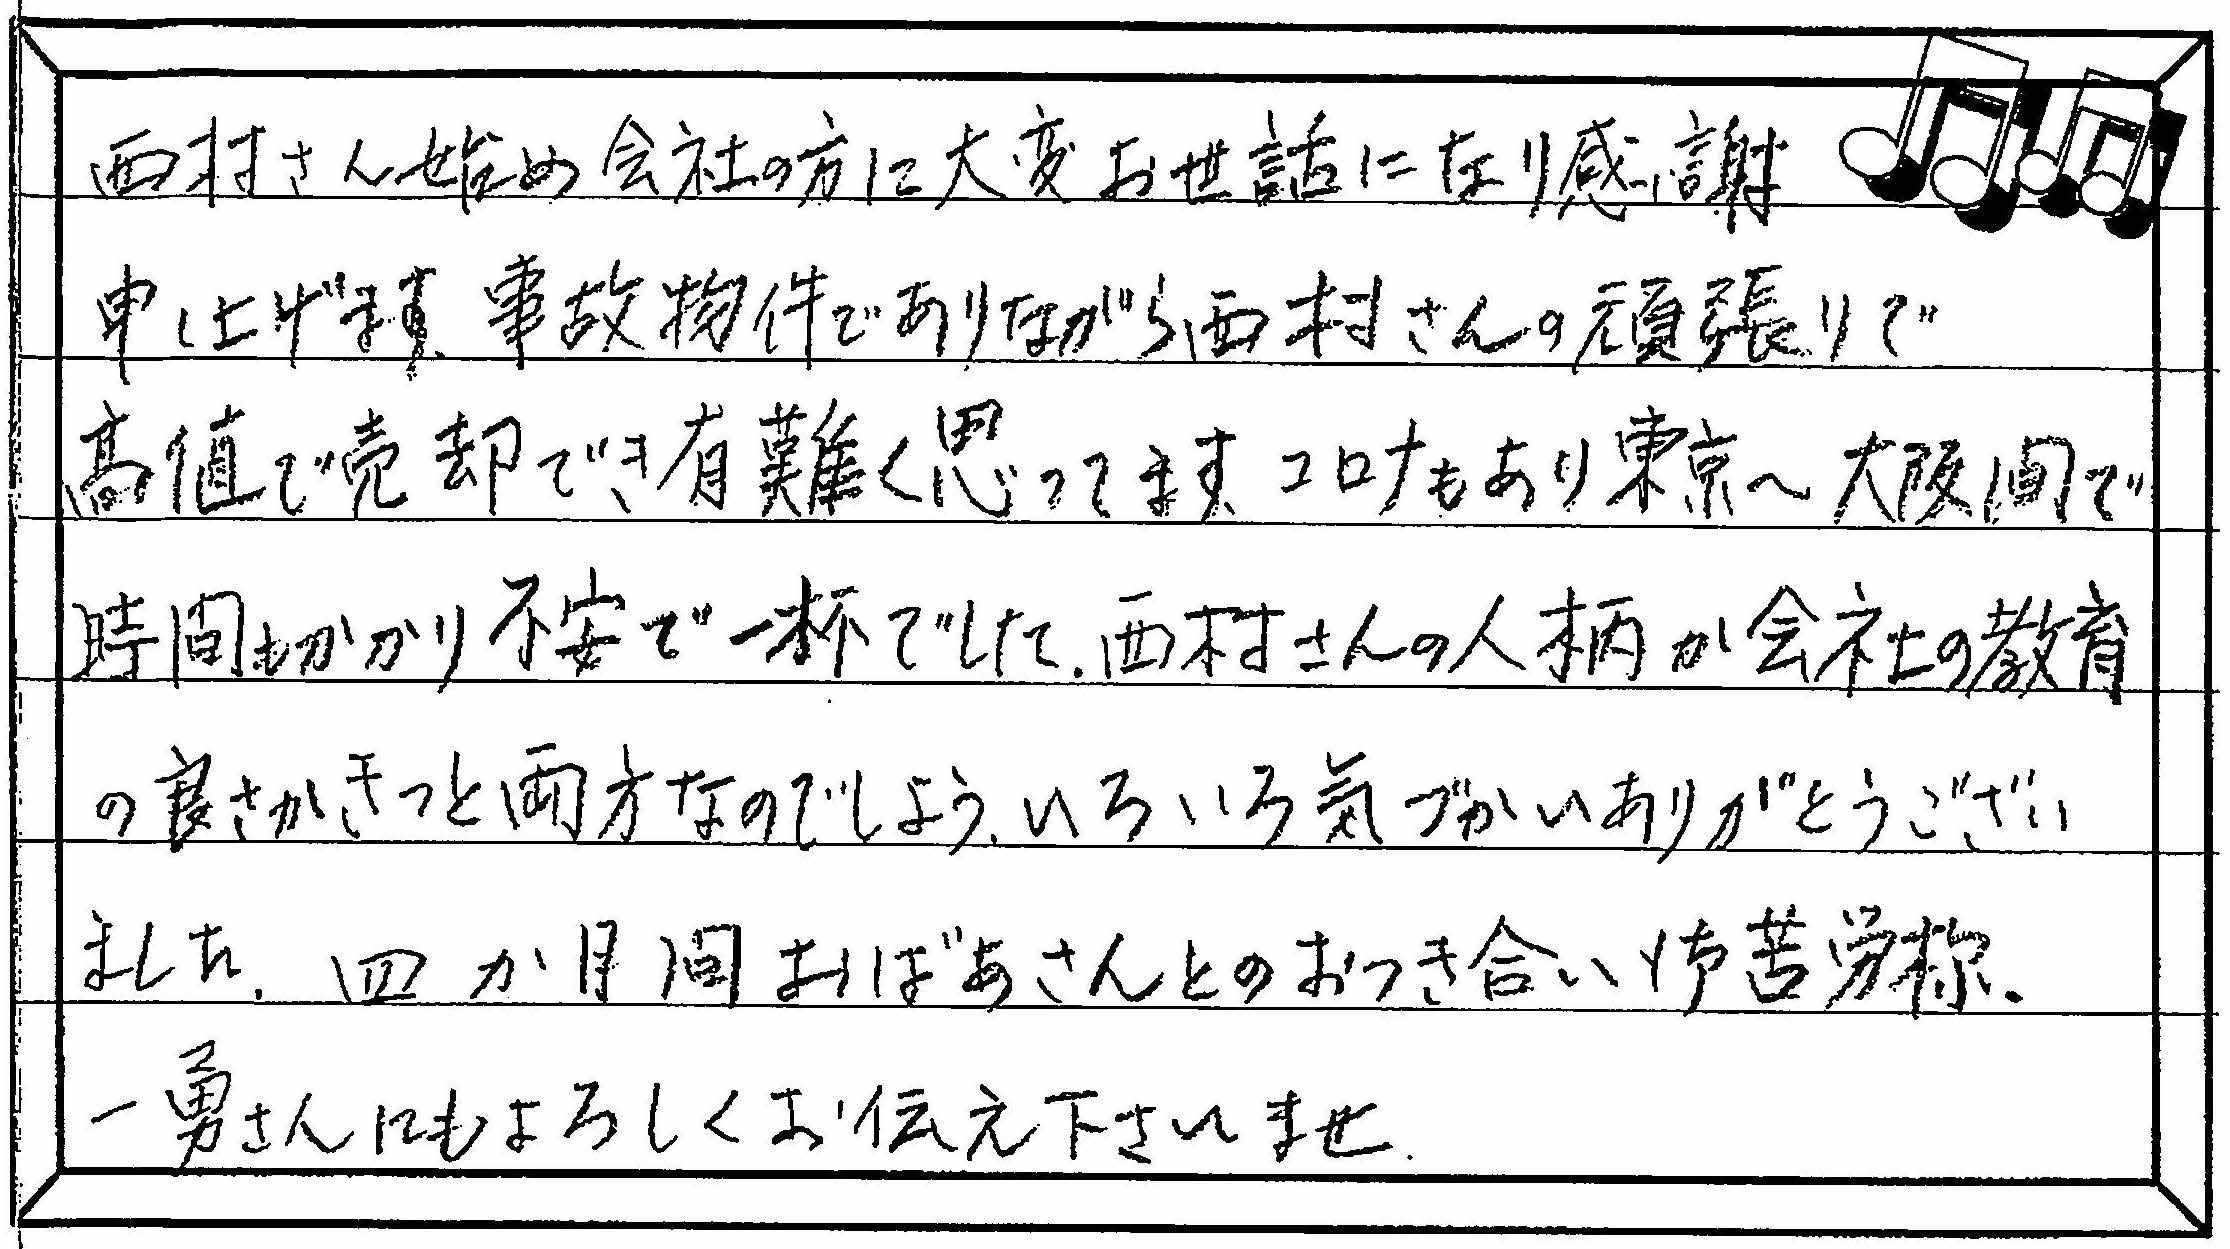 西村さん始め会社の方に大変お世話になり感謝
申し上げます。事故物件でありながら西村さんの頑張りで
高値で売却でき有難く思ってます。コロナもあり東京へ大阪間で
時間もかかり不安で一杯でした。西村さんの人柄か会社の教育
の良さかきっと両方なのでしょう。いろいろ気づかいありがとうござい
ました。四か月間おばあさんとのおつき合い御苦労様。
一勇さんにもよろしくお伝え下さいませ。